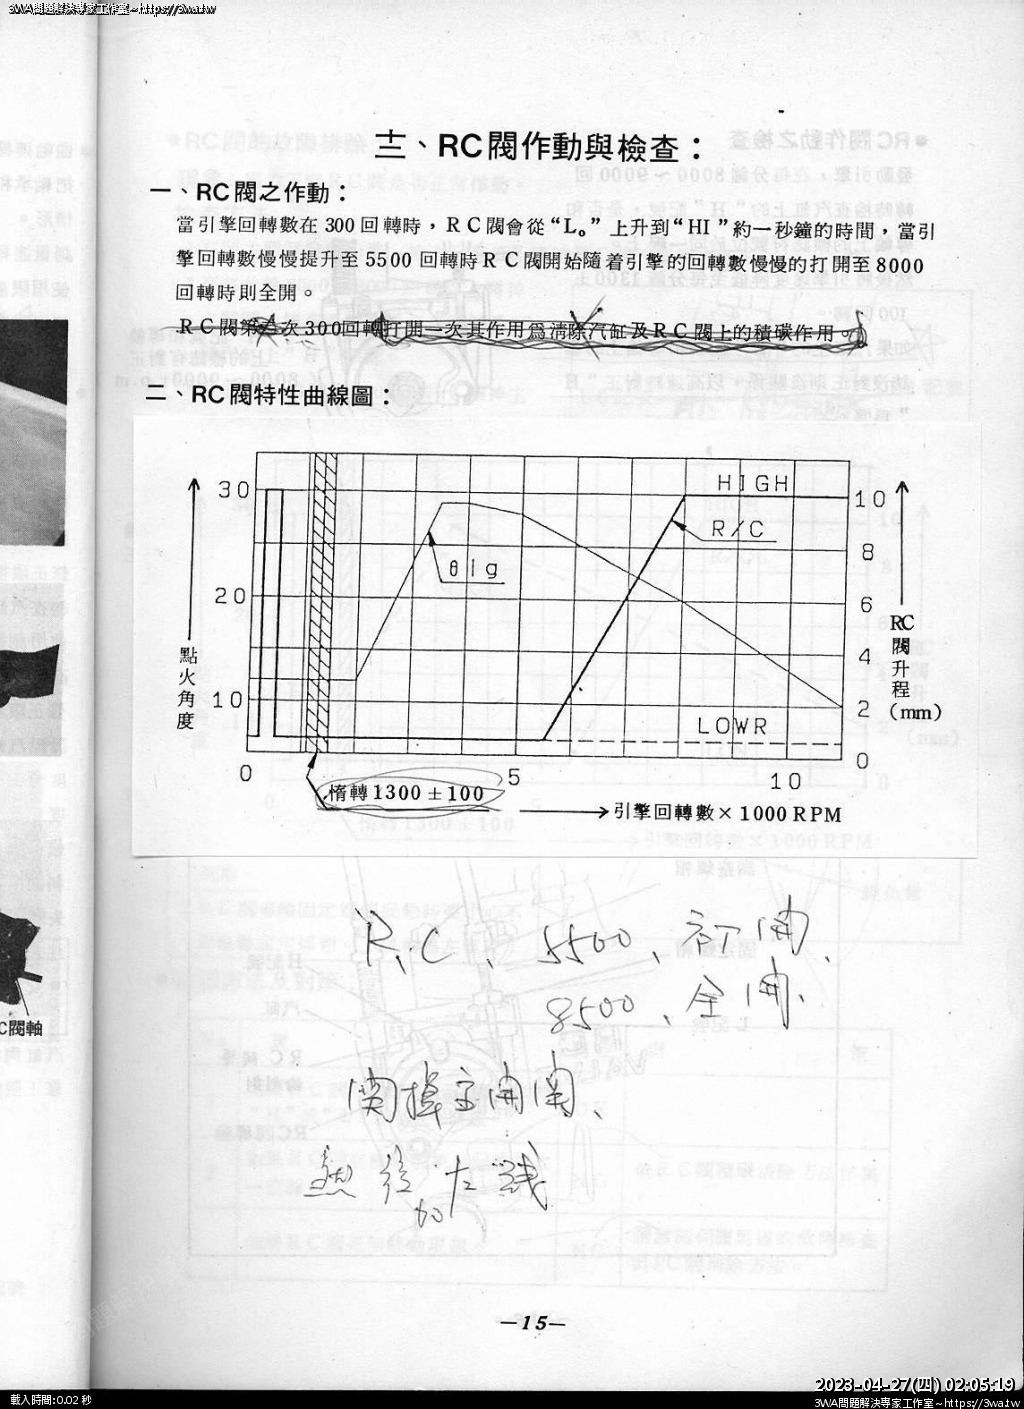 3WA問題解決專家工作室~https://3wa.tw
十二、RC閥作動與檢查：
一、RC閥之作動：
當引擎回轉數在 300 回轉時，RC閥會從“L。” 上升到“HI ”約一秒鐘的時間，當引
擎回轉數慢慢提升至 5500 回轉時RC閥開始隨着引擎的回轉數慢慢的打開至8000
回轉時則全開。
RC閥第 次300回轉打開一次其作用爲清除汽缸及RC閥上的積碳作用。
二、RC閥特性曲線圖：
30
20
10
點火角度
HIGH
R/C
θIg
LOWR
10
8
6
4
2
0
RC閥升程
(mm)
0
5
10
惰轉1300±100
引擎回轉數×1000RPM
R.C、5500、初開、
8500、全開、
關掉主開關、
熱後 左線
to
C閥軸
—15—
載入時間:0.02 秒
2023-04-27(四) 02:05:19
3WA問題解決專家工作室~https://3wa.tw